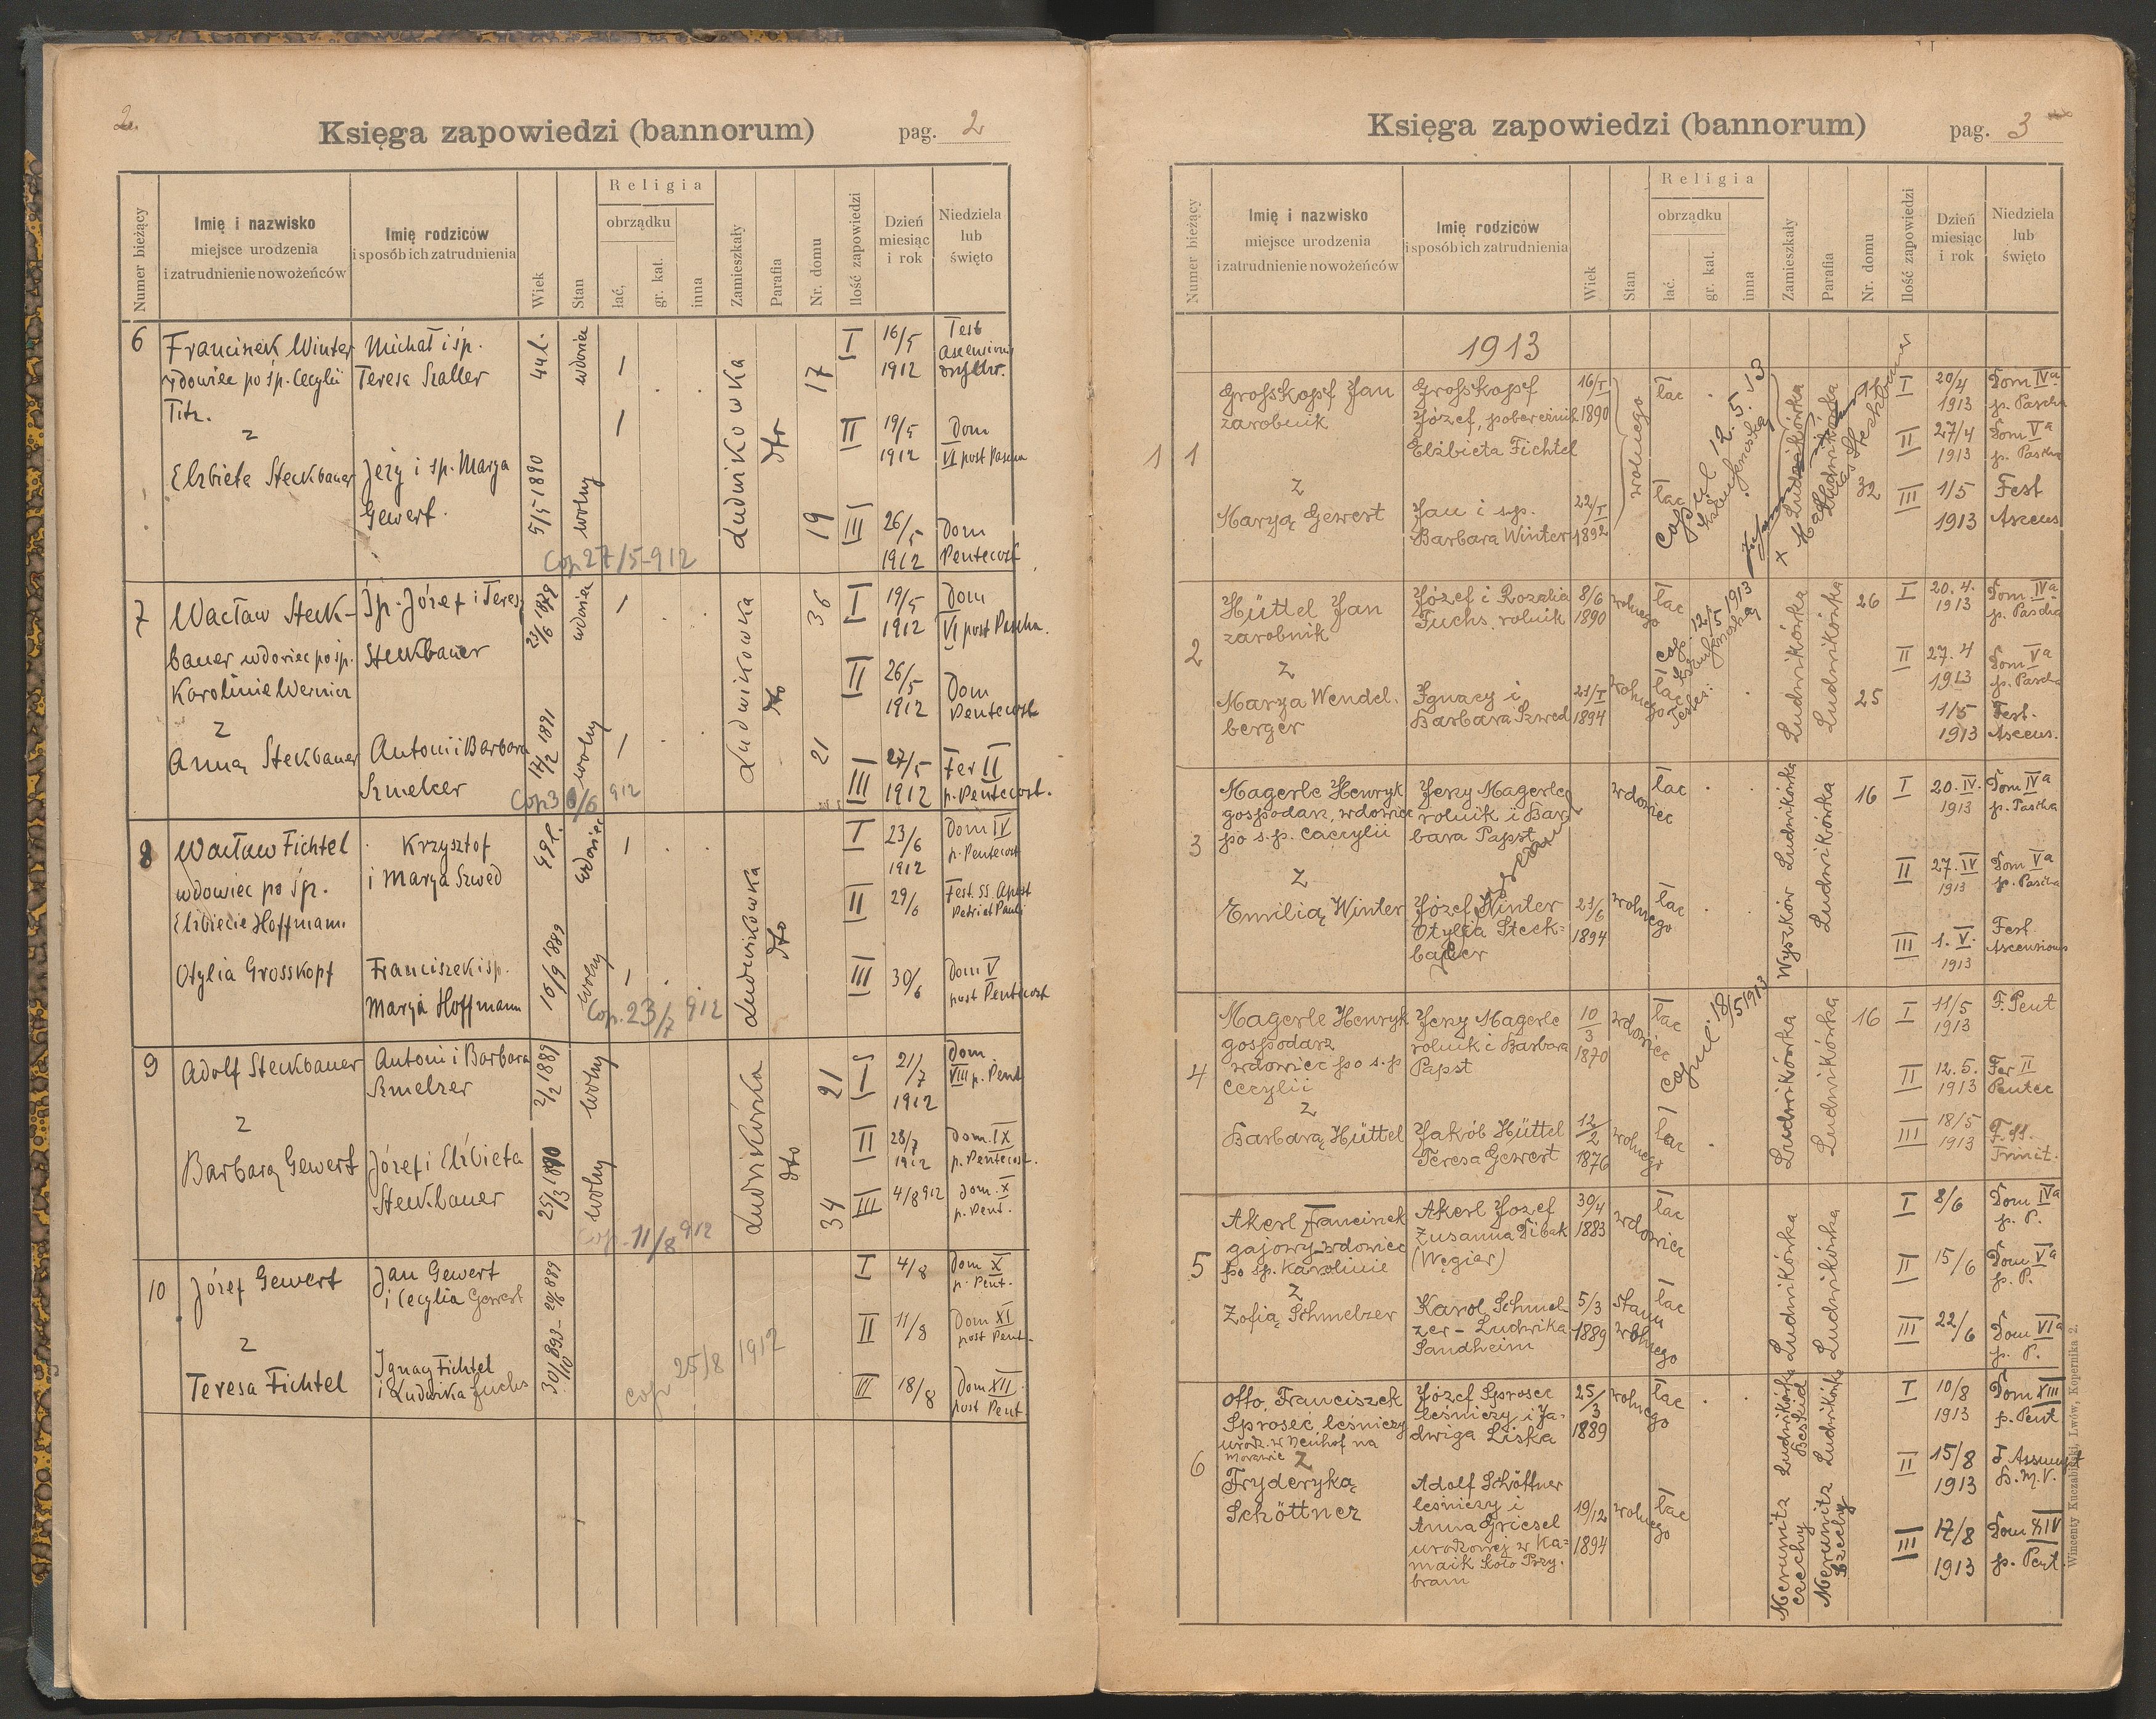 2.
Księga zapowiedzi (bannorum)
pag. 2
Numer bieżący
Imię i nazwisko
miejsce urodzenia
i zatrudnienie nowożeńców
Imię rodziców
i sposób ich zatrudnienia
Wiek
Stan
Religia
obrządku
łać,
gr. kat.
inna
Zamieszkały
Parafia
Nr. domu
Ilość zapowiedzi
Dzień
miesiąc
i rok
Niedziela
lub
święto
6
Franciszek Winter
wdowiec po śp. Cecylii
Titz.
z
Elżbieta Steckbauer
Michał i śp.
Teresa Szaller
Jeży i sp. Marya
Gewert.
44 l.
5/5 1890
wdowiec
wolny
1
1
Cop 27/5-912
Ludwikowka
dto
17
19
I
16/5
1912
Fest
Ascensionis
II
19/5
1912
Dom
VI post Pascha
III
26/5
1912
Dom
Pentecost
7
Wacław Steck-
bauer wdowiec po sp.
Karolinie Wernin
z
Anną Steckbauer
Śp. Józef i Teresa
Steckbauer
Antoni i Barbara
Szmelcer
23/6 1879
17/2 1891
wdowiec
wolny
1
1
Cop 30/6 912
Ludwikowka
dto
36
21
I
19/5
1912
Dom
VI post Pascha.
II
26/5
1912
Dom
Pentecost
III
27/5
1912
Fer II
p. Pentecost.
8
Wacław Fichtel
wdowiec po śp.
Elżbiecie Hoffmann.
Otylia Grosskopf
Krzysztof
i Marya Szwed
Franciszek i sp.
Marya Hoffmann
49 l.
16/9 1889
wdowiec
wolny
1
1
Cop. 23/7 912
Ludwikówka
dto
I
23/6
1912
Dom IV
p. Pentecost
II
29/6
Fest. SS. Apost
Petri et Pauli
III
30/6
Dom V
post Pentecost
9
Adolf Steckbauer
z
Barbarą Gewert
Antoni i Barbara
Szmelzer
Józef i Elżbieta
Steckbauer
2/2 1889
25/3 1890
wolny
wolny
Cop. 11/8 912
Ludwikówka
dto
21
34
I
21/7
1912
Dom
VIII p. Pent
II
28/7
1912
Dom. IX
p. Pentecost.
III
4/8 912
Dom. X
p. Pent.
10
Józef Gewert
z
Teresa Fichtel
Jan Gewert
i Cecylia Gewert
Ignacy Fichtel
i Ludwika Fuchs
30/10 893
cop 25/8 1912
I
4/8
Dom X
p. Pent.
II
11/8
Dom XI
post Pent.
III
18/8
Dom XII
post Pent.
Księga zapowiedzi (bannorum)
pag. 3
Numer bieżący
Imię i nazwisko
miejsce urodzenia
i zatrudnienie nowożeńców
Imię rodziców
i sposób ich zatrudnienia
Wiek
Stan
Religia
obrządku
łać.
gr. kat.
inna
Zamieszkały
Parafia
Nr. domu
Ilość zapowiedzi
Dzień
miesiąc
i rok
Niedziela
lub
święto
1913
1 1
Großkopf Jan
zarobnik
z
Maryą Gewert
Großkopf
Józef, pobereźnik
Elżbieta Fichtel
Jan i s.p.
Barbara Winter
16/I
1890
22/I
1892
wolnego
łac
łac
Copul 12.5.13
Ludwikówka
Ludwikówka
32
I
20/4
1913
Dom IVa
p. Pascha
II
27/4
1913
Dom Va
p. Pascha
III
1/5
1913
Fest
Ascens
2
Hüttel Jan
zarobnik
z
Marya Wendel.
berger
Józef i Rozalia
Fuchs. rolnik
Ignacy i
Barbara Szwed
8/6
1890
21/I
1894
wolnego
wolnego
łac
łac
cop. 12/5 1913
Ludwikówka
Ludwikówka
26
25
I
20.4.
1913
Dom. IVa
p. Pascha
II
27.4
1913
Dom Va
p. Pascha
1/5
1913
Fest.
Ascens.
3
Magerle Henryk
gospodarz, wdowiec
po s.p. Caecylii
z
Emilią Winter
Jerzy Magerle
rolnik i Bar
bara Papst
Józef Winter
Otylia Steck=
bauer
21/6
1894
wdowiec
wolnego
łac
łac
Wyszków Ludwikówka
Ludwikówka
16
I
20.IV.
1913
Dom IVa
p. Pascha
II
27.IV
1913
Dom Va
p. Pascha
III
1. V.
1913
Fest
Ascensionis
4
Magerle Henryk
gospodarz
wdowiec po s.p
Cecylii
z
Barbarą Hüttel
Jerzy Magerle
rolnik i Barbara
Papst
Jakób Hüttel
Teresa Gewert
10/3
1870
12/2
1876
wdowiec
wolnego
łac
łac
Copul. 18/5 1913
Ludwikówka
Ludwikówka
16
I
11/5
1913
F. Pent
II
12.5.
1913
Fer II
Pentec
III
18/5
1913
F. SS.
Trinit.
5
Akerl Franciszek
gajowy wdowiec
po sp. Karolinie
z
Zofią Schmelzer
Akerl Jozef
Zusanna Dibak
(Węgier)
Karol Schmel
zer - Ludwika
Sandheim
30/4
1883
5/3
1889
wdowiec
stanu
wolnego
łac
łac
Ludwikówka
Ludwikówka
I
8/6
Dom IVa
p. P.
II
15/6
Dom Va
p. P.
III
22/6
Dom VIa
p. P.
6
Otto, Franciszek
Sprosec leśniczy
urodz. w Neuhof na
Morawie
z
Fryderyką
Schöttner
Józef Sprosec
leśniczy i Ja-
dwiga Liska
Adolf Schöttner
leśniczy i
Anna Griesel
urodzonej w Ka=
maik koło Przy.
bram
25/3
1889
19/12
1894
wolnego
wolnego
łac
łac
Ludwikówka
Beskid
Ludwikówka
Merunitz
Czechy
Merunitz
Czechy
I
10/8
1913
Dom XIII
p. Pent
II
15/8
1913
F. Assumpt
B.M.V.
III
17/8
1913
Dom XIV
p. Pent
Wincenty Kuczabiński, Lwów, Kopernika 2.